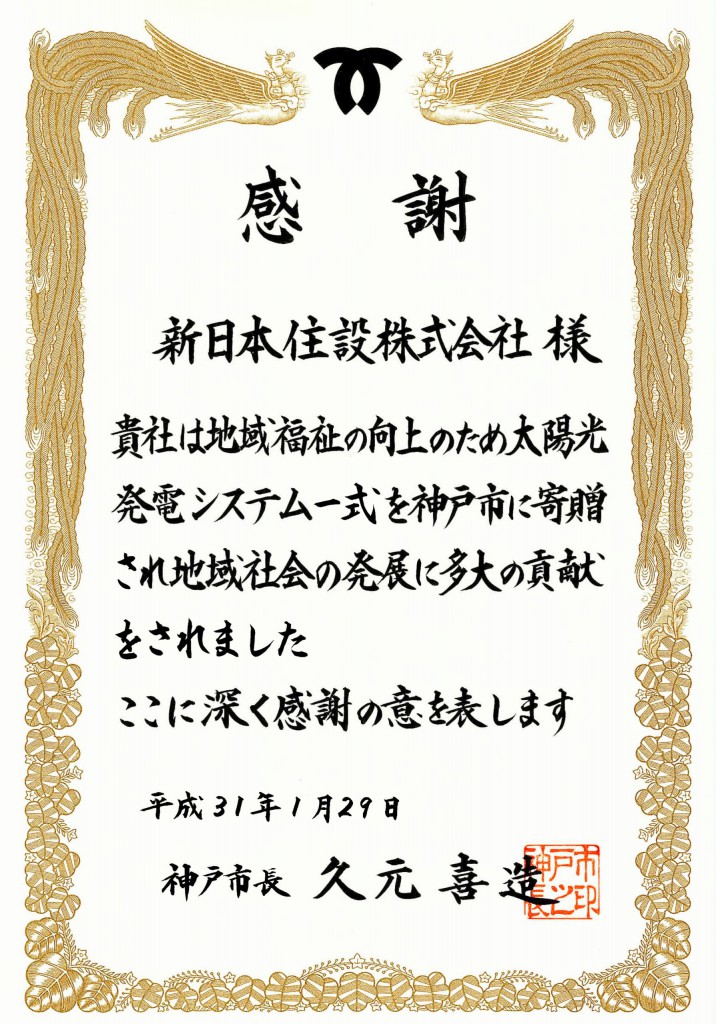 感謝
新日本住設株式会社 様
貴社は地域福祉の向上のため太陽光
発電システム一式を神戸市に寄贈
され地域社会の発展に多大の貢献
をされました
ここに深く感謝の意を表します
平成31年1月29日
神戸市長 久元喜造
神戸市長之印